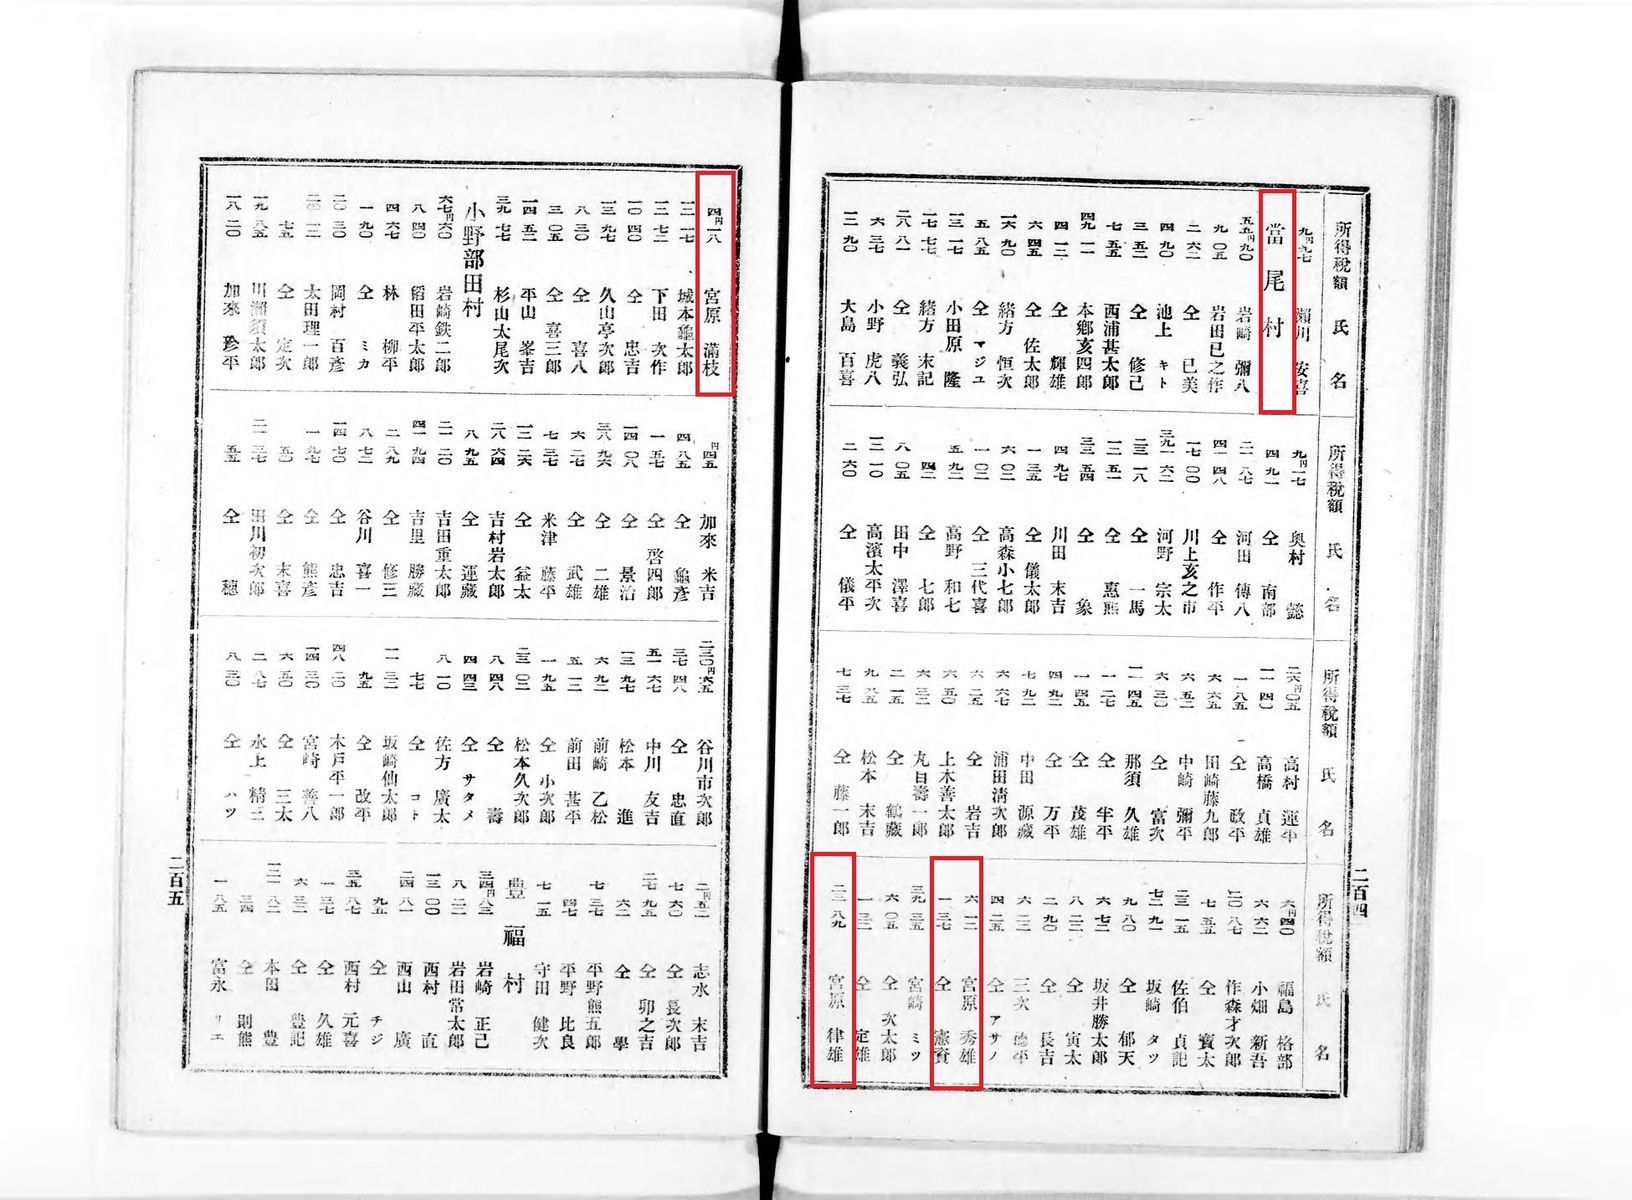 所得税額 氏名
九円九七 瀬川 安喜
當尾村
五五円九〇 岩崎 彌八
九 〇五 岩田巳之作
二 六二 仝 已美
四 九〇 池上 キト
三 五二 仝 修己
七 五五 西浦甚太郎
四九 一一 本郷亥四郎
四 一二 仝 輝雄
六 四五 仝 佐太郎
一六 九〇 緒方 恒次
五 八五 仝 マジユ
一三 一七 小田原 隆
一七 七七 緒方 末記
二八 八一 仝 義弘
六 三七 小野 虎八
一二 九〇 大島 百喜
所得税額 氏名
九円一七 奥村 懿
四 九二 仝 南部
二一 八七 河田 傳八
四一 四八 仝 作平
一七 〇〇 川上亥之市
三九 六二 河野 宗太
二三 一八 仝 一馬
一三 五二 仝 惠熊
三三 五四 仝 象
四 九七 川田 末吉
一 三五 仝 儀太郎
六 〇二 高森小七郎
一 〇二 仝 三代喜
五 九二 高野 和七
四二 仝 七郎
八 〇五 田中 澤喜
一三 一〇 高濱太平次
二 六〇 仝 儀平
所得税額 氏名
二六円〇五 高村 運平
一一 四〇 高橋 貞雄
一 八五 仝 政平
六 六五 田崎藤九郎
六 五二 中崎 彌平
六 三〇 仝 富次
一一 四五 那須 久雄
一 二七 仝 半平
一 四五 仝 茂雄
四 九二 仝 万平
七 九二 中田 源藏
六 六七 浦田清次郎
六 二五 仝 岩吉
六 五〇 上木善太郎
六 三二 丸目壽一郎
二 一五 仝 鶴藏
九 八五 松本 末吉
七 三七 仝 藤一郎
所得税額 氏名
六円四〇 福島 格部
六 六二 小畑 新吾
二〇 八七 作森才次郎
七 五五 仝 寶太
三三 一五 佐伯 貞記
七二 九一 坂崎 タツ
九 八〇 仝 郁天
六 七二 坂井勝太郎
八 二二 仝 寅太
二 九〇 仝 長吉
六 二二 三次 德平
四 二五 仝 アサノ
六 一二 宮原 秀雄
一 三七 仝 憲資
三九 三五 宮崎 ミツ
六 〇五 仝 次太郎
一 三二 仝 定雄
二二 八九 宮原 律雄
二百四
四円一八 宮原 滿枝
一二 一七 城本龜太郎
三 七二 下田 次作
一〇 四〇 仝 忠吉
一三 九七 久山亭次郎
八 三〇 仝 喜八
三 〇五 仝 喜三郎
一四 五二 平山 峯吉
三九 七七 杉山太尾次
小野部田村
六七円六〇 岩崎鉄二郎
八 四〇 稻田平太郎
四 六七 林 柳平
一 九〇 仝 ミカ
二〇 三〇 岡村 百彦
二〇 一二 太田理一郎
七五 仝 定次
一九 八五 川瀬須太郎
一八 二〇 加來 彦平
円四五 加來 米吉
四 八五 仝 龜彦
一 五七 仝 啓四郎
一四 〇八 仝 景治
三八 九六 仝 二雄
六 二七 仝 武雄
七 三七 米津 藤平
一三 二六 仝 益太
二六 六四 吉村岩太郎
八 九五 仝 運藏
二一 二〇 吉田重太郎
四一 九四 吉里 勝藏
二 八九 仝 修三
八 七二 谷川 喜一
一四 七〇 仝 忠吉
一 九七 仝 熊彦
五〇 仝 末喜
二一 三七 田川初次郎
五五 仝 穗
二三〇円六五 谷川市次郎
三七 四八 仝 忠直
五一 六七 中川 友吉
一三 九七 松本 進
六 九二 前崎 乙松
五 一二 前田 甚平
一 九五 仝 小次郎
二三 〇二 松本久次郎
八 四八 仝 壽
四 四三 仝 サタメ
八 一〇 佐方 廣太
七七 仝 コト
一一 三二 坂崎仙太郎
九五 仝 改平
四八 二〇 木戸平一郎
一四 三〇 宮崎 善八
六 五〇 仝 三太
二 八七 水上 精三
八 三〇 仝 ハツ
二円五二 志水 末吉
七 六〇 仝 長次郎
二七 九五 仝 卯之吉
六二 仝 學
七 三七 平野熊五郎
四七 平野 比良
七 一五 守田 健次
豊福村
三四円八三 岩崎 正己
八 二二 岩田常太郎
一三 〇〇 西村 直
二四 八一 西山 廣
九五 仝 チジ
三五 八七 西村 元喜
一 三七 仝 久雄
六 三二 仝 豊記
三一 八二 本田 豊
三四 仝 則熊
一 八五 富永 リエ
二百五